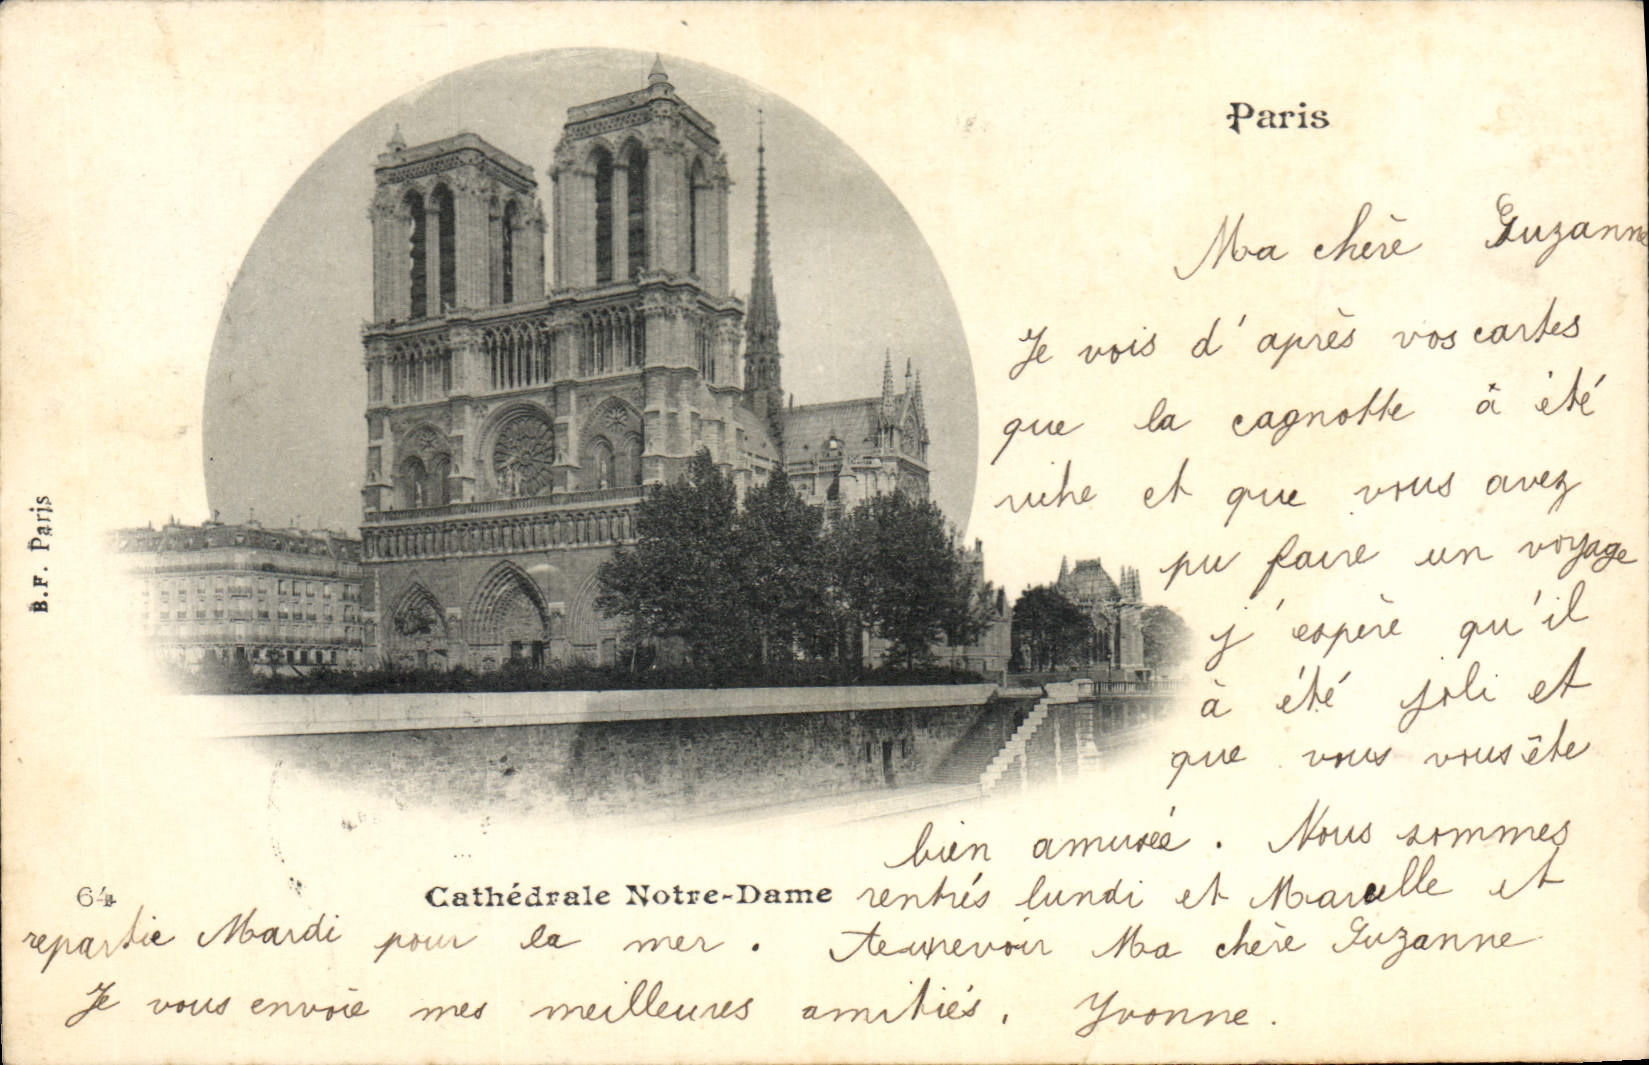 Paris
Ma chère Suzanne
Je vois d'après vos cartes
que la cagnotte à été
riche et que vous avez
pu faire un voyage
j'espère qu'il
à été joli et
que vous vous ête
bien amusée. Nous sommes
rentrés lundi et Marcelle et
repartie Mardi pour la mer. Aurevoir Ma chère Suzanne
Je vous envoie mes meilleures amitiés. Yvonne.
Cathédrale Notre-Dame
64
B.F. Paris